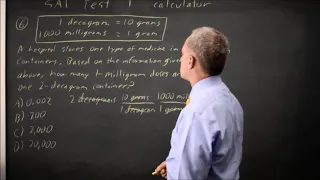 SAT Test 1 calculator
6
1 decagram = 10 grams
1000 milligrams = 1 gram
A hospital stores one type of medicine in
containers. Based on the information given
above, how many 1-milligram doses are
one 2-decagram container?
A) 0.002 2 decagram 10 grams 1000
B) 200 1 decagram 1 gram
C) 2,000
D) 20,000